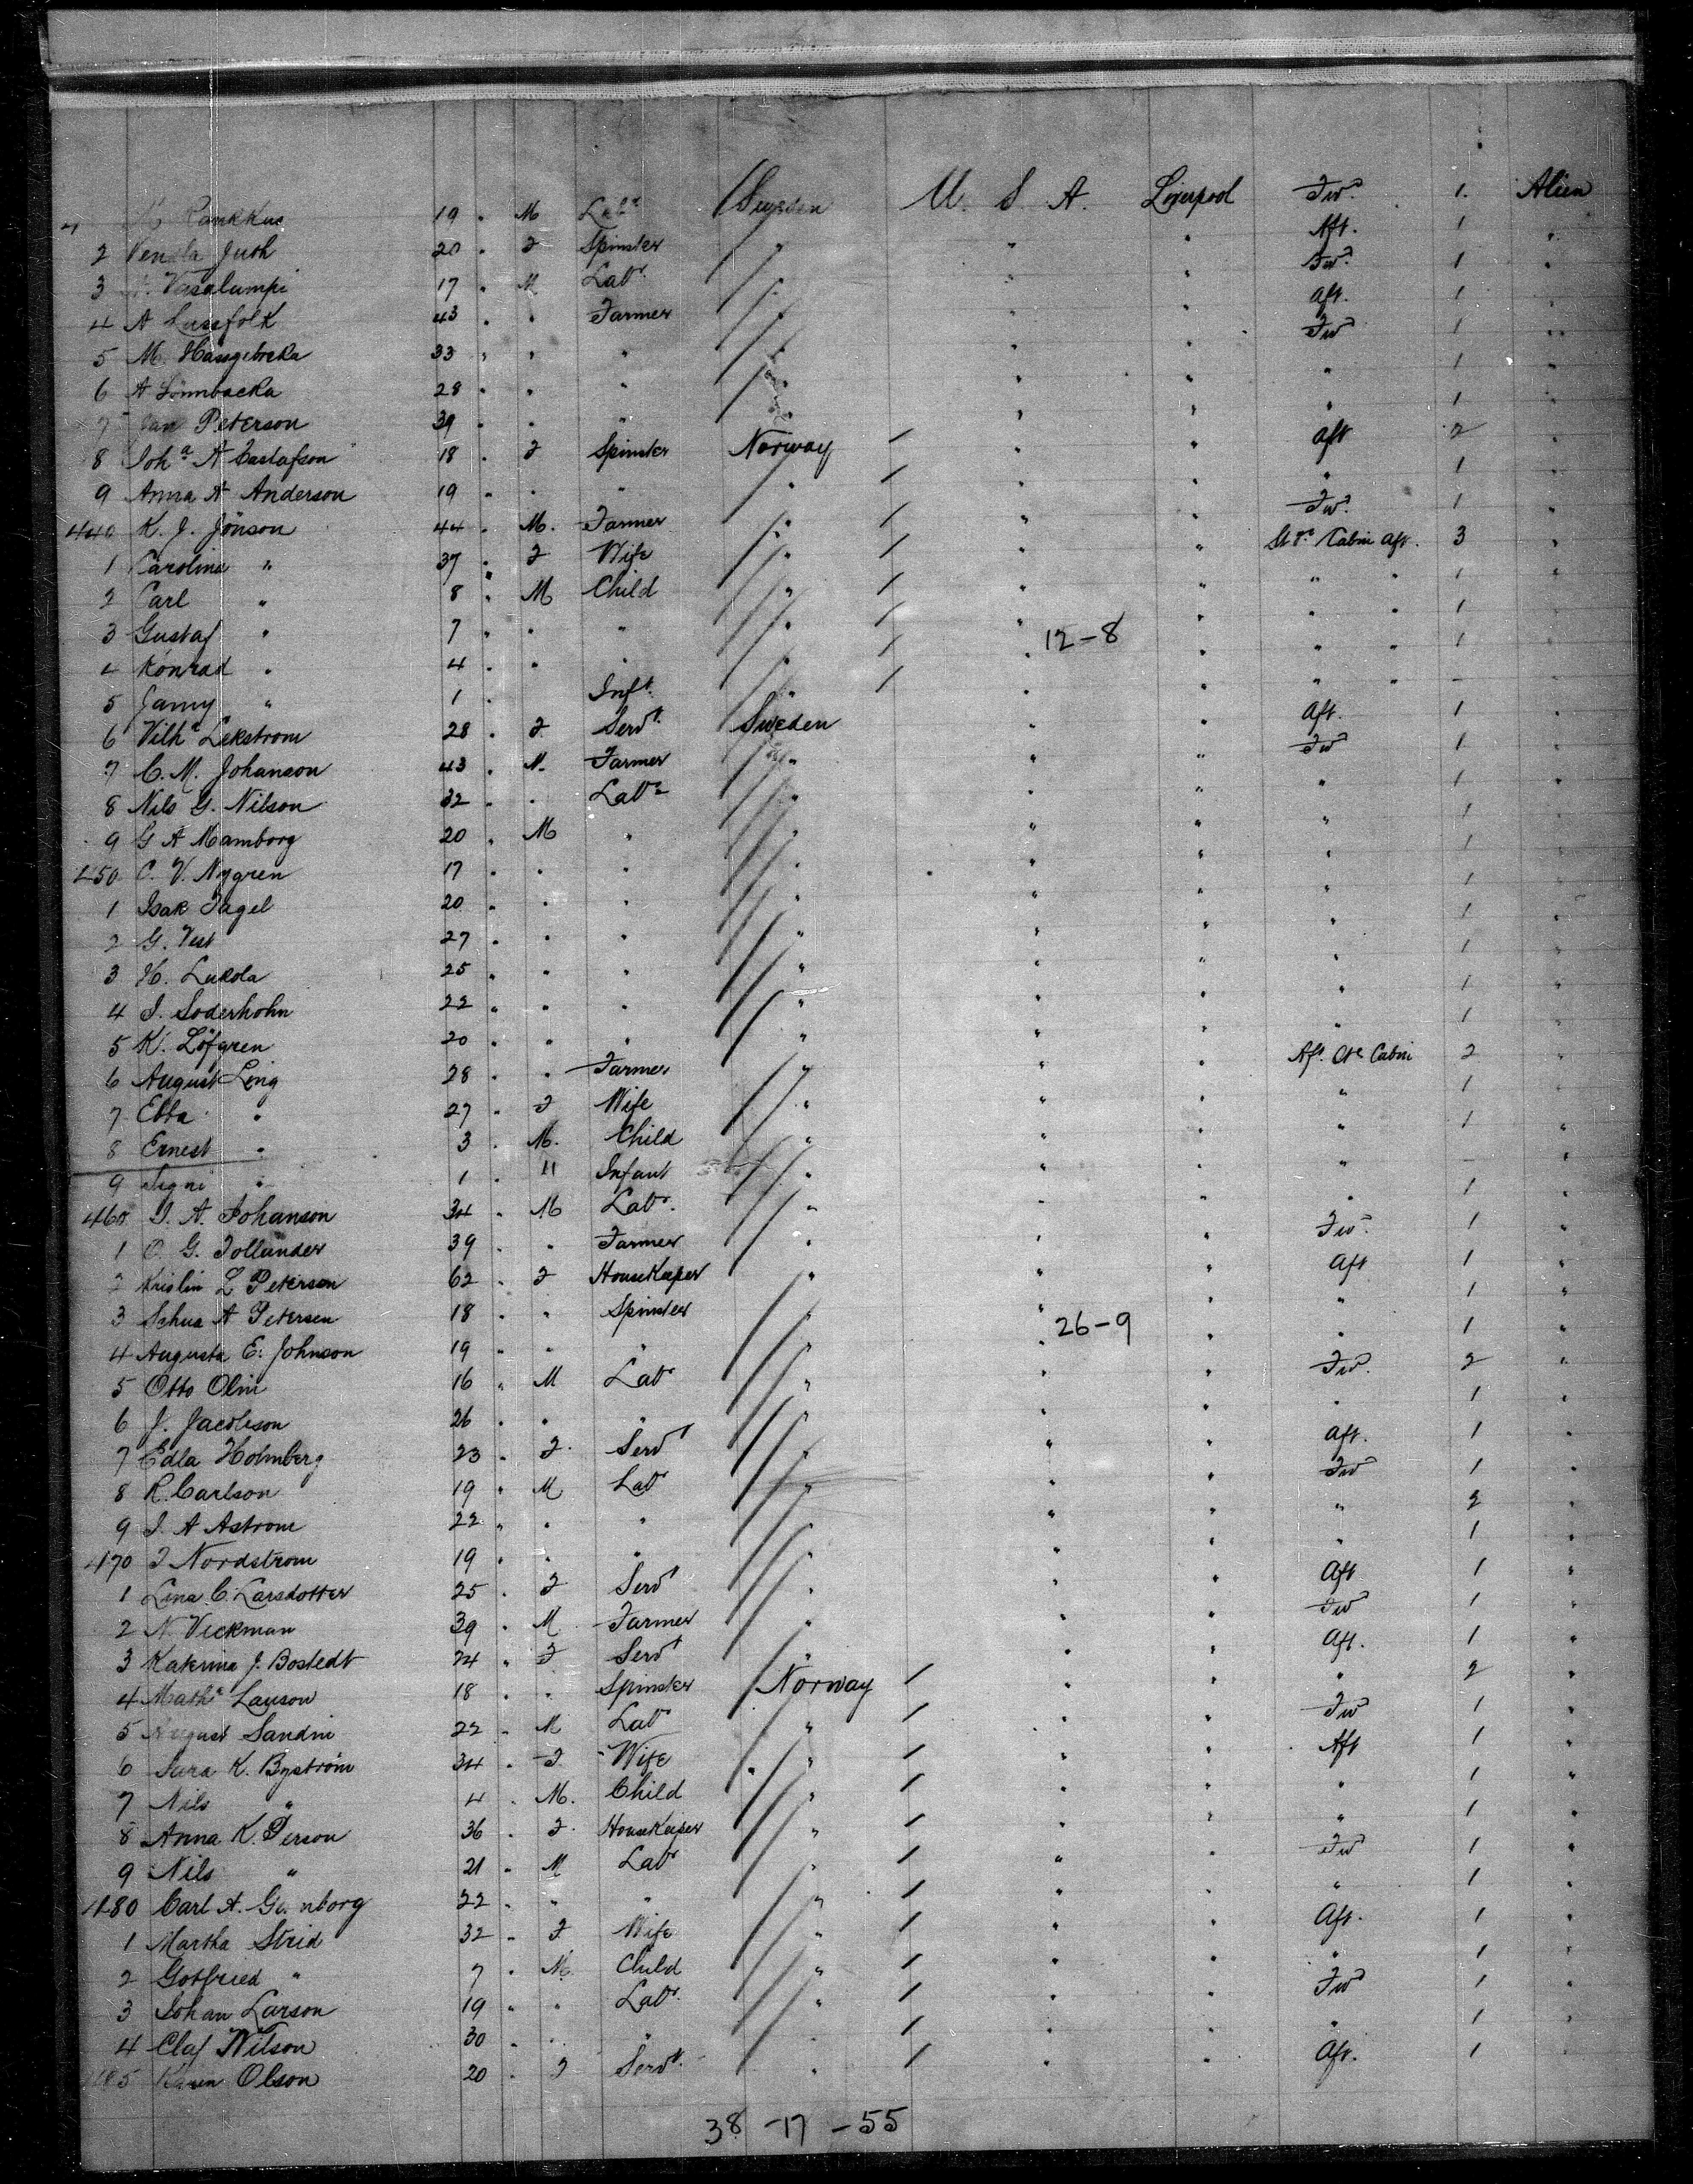 Rankkuc 19 " M Labr Sweden U. S. A. Liverpool Fwd 1. Alien
2 Vendla Juth 20 " F Spinster " " " Aft. 1 "
3 Vasalumpi 17 " M Labr " " " Fwd 1 "
4 A Lassfolk 43 " " Farmer " " " Aft. 1 "
5 M. 33 " " " " " " Fwd 1 "
6 A Lönnbacka 28 " " " " " " " 1 "
7 Jan Peterson 39 " " " " " " " 1 "
8 Joha A Gustafson 18 " F Spinster Norway " " Aft 2 "
9 Anna A Anderson 19 " " " " " " " 1 "
440 K. J. Jönson 44 " M. Farmer " " " Fwd 1 "
1 Carolina " 37 " F Wife " " " Cabin Aft. 3 "
2 Carl " 8 " M Child " " " " " 1 "
3 Gustaf " 7 " " " " " " " " 1 "
12-8
4 Konrad " 4 " " " " " " " " 1 "
5 Janny " 1 " Inft. " " " " " - "
6 Vilha Lekstrom 28 " F Servt. Sweden " " Aft. 1 "
7 C. M. Johanson 43 " M. Farmer " " " Fwd 1 "
8 Nils G. Nilson 32 " " Labr " " " " 1 "
9 G A Mamborg 20 " M " " " " " 1 "
450 C. V. Nygren 17 " " " " " " " 1 "
1 Isak Fagel 20 " " " " " " " 1 "
2 G. Vest 27 " " " " " " " 1 "
3 H. Lukola 25 " " " " " " " 1 "
4 I. Soderhohn 22 " " " " " " " 1 "
5 K. Löfgren 20 " " " " " " " 1 "
6 August Ling 28 " " Farmer " " " Aft. Cabin 2 "
7 Ebba " 27 " F Wife " " " " 1 "
8 Ernest " 3 " M. Child " " " " 1 "
9 Signi " 1 " " Infant " " " " - "
460 J. A. Johanson 34 " M Labr. " " " " 1 "
1 O. G. Tollander 39 " " Farmer " " " Fwd 1 "
2 Kristin L Peterson 62 " F HouseKeeper " " " Aft 1 "
3 A Petersen 18 " " Spinster " " " " 1 "
26-9
4 Augusta E. Johnson 19 " " " " " " " 1 "
5 Otto Olin 16 " M Labr " " " Fwd. 2 "
6 J. Jacobson 26 " " " " " " " 1 "
7 Edla Holmberg 23 " F. Servt " " " Aft. 1 "
8 R. Carlson 19 " M Labr " " " Fwd 1 "
9 J. A Astrom 22 " " " " " " " 2 "
470 J Nordstrom 19 " " " " " " " 1 "
1 Lena C. Larsdotter 25 " F Servt " " " Aft 1 "
2 N. Vickman 39 " M Farmer " " " Fwd 1 "
3 Katerina J. Bostedt 24 " F Servt " " " Aft. 1 "
4 Matha Lauson 18 " " Spinster Norway " " " 2 "
5 August Sandin 22 " M Labr " " " Fwd 1 "
6 Sara K. Byström 34 " F Wife " " " Aft 1 "
7 Nils " 4 " M. Child " " " " 1 "
8 Anna K. Person 36 " F. HouseKeeper " " " " 1 "
9 Nils " 21 " M Labr " " " Fwd 1 "
480 Carl A. 22 " " " " " " " 1 "
1 Martha Strid 32 " F Wife " " " Aft. 1 "
2 Gotfried " 7 " M Child " " " " 1 "
3 Johan Larson 19 " " Labr. " " " Fwd 1 "
4 Olaf Nilson 30 " " " " " " " 1 "
485 Karen Olson 20 " F Servt. " " " Aft. 1 "
38-17-55